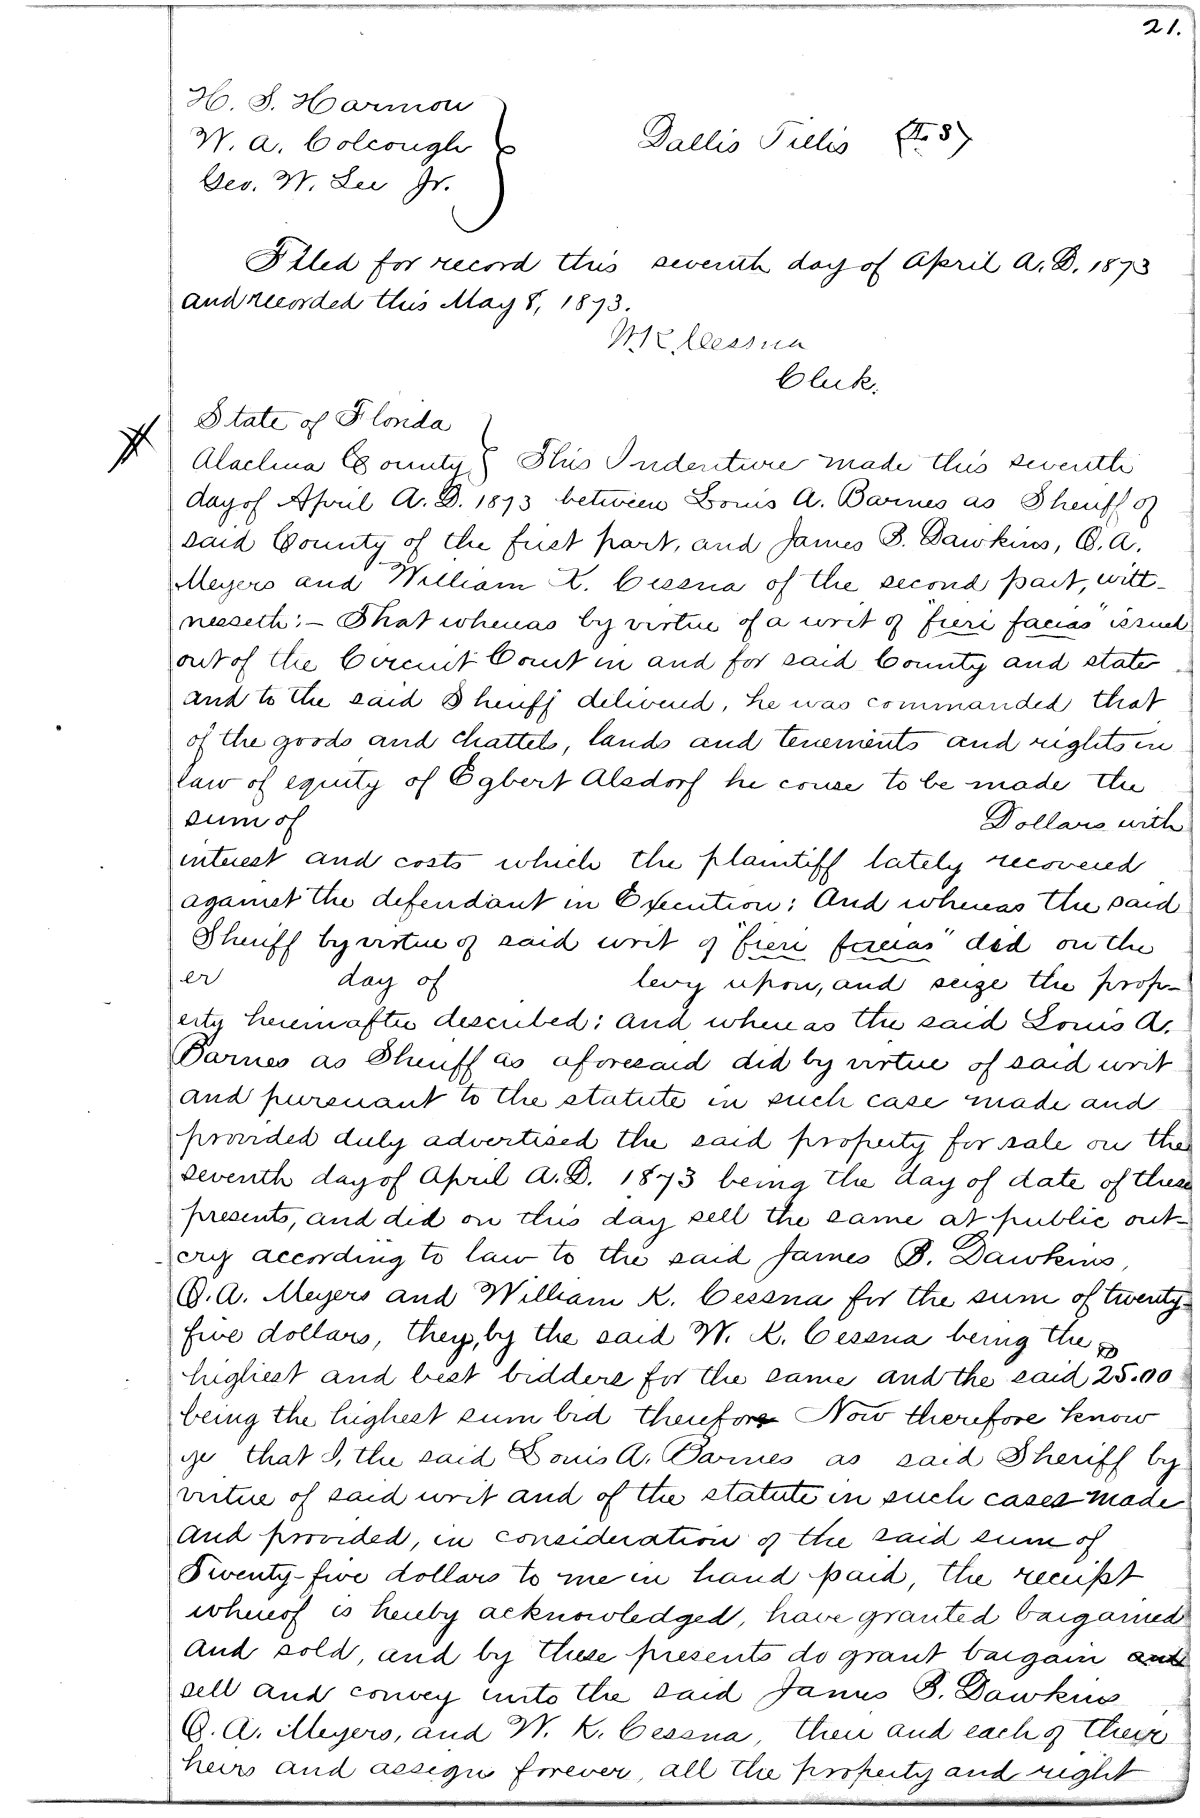 21.
H. S. Harmon
W. A. Colcough
Geo. W. Lee Jr.
Dallis Tillis (L. S)
Filed for record this seventh day of April A. D. 1873
and recorded this May 8, 1873.
W. K. Cessna
Clerk.
State of Florida
Alachua County } This Indenture made this seventh
day of April A. D. 1873 between Louis A. Barnes as Sheriff of
said County of the first part, and James B. Dawkins, O. A.
Meyers and William K. Cessna of the second part, witt-
nesseth:- That whereas by virtue of a writ of "fieri facias" issued
out of the Circuit Court in and for said County and state
and to the said Sheriff delivered, he was commanded that
of the goods and chattels, lands and tenements and rights in
law of equity of Egbert Alsdorf he couse to be made the
sum of Dollars with
interest and costs which the plaintiff lately recovered
against the defendant in Execution: And whereas the said
Sheriff by virtue of said writ of "fieri facias" did on the
er day of levy upon, and seize the prop-
erty hereinafter described: and whereas the said Louis A.
Barnes as Sheriff as aforesaid did by virtue of said writ
and pursuant to the statute in such case made and
provided duly advertised the said property for sale on the
seventh day of April A. D. 1873 being the day of date of these
presents, and did on this day sell the same at public out-
cry according to law to the said James B. Dawkins,
O. A. Meyers and William K. Cessna for the sum of twenty-
five dollars, they, by the said W. K. Cessna being the
highest and best bidders for the same and the said 25.00
being the highest sum bid therefore Now therefore know
ye that I, the said Louis A. Barnes as said Sheriff by
virtue of said writ and of the statute in such cases made
and provided, in consideration of the said sum of
Twenty-five dollars to me in hand paid, the receipt
whereof is hereby acknowledged, have granted bargained
and sold, and by these presents do grant bargain and
sell and convey unto the said James B. Dawkins,
O. A. Meyers, and W. K. Cessna, their and each of their
heirs and assigns forever, all the property and right